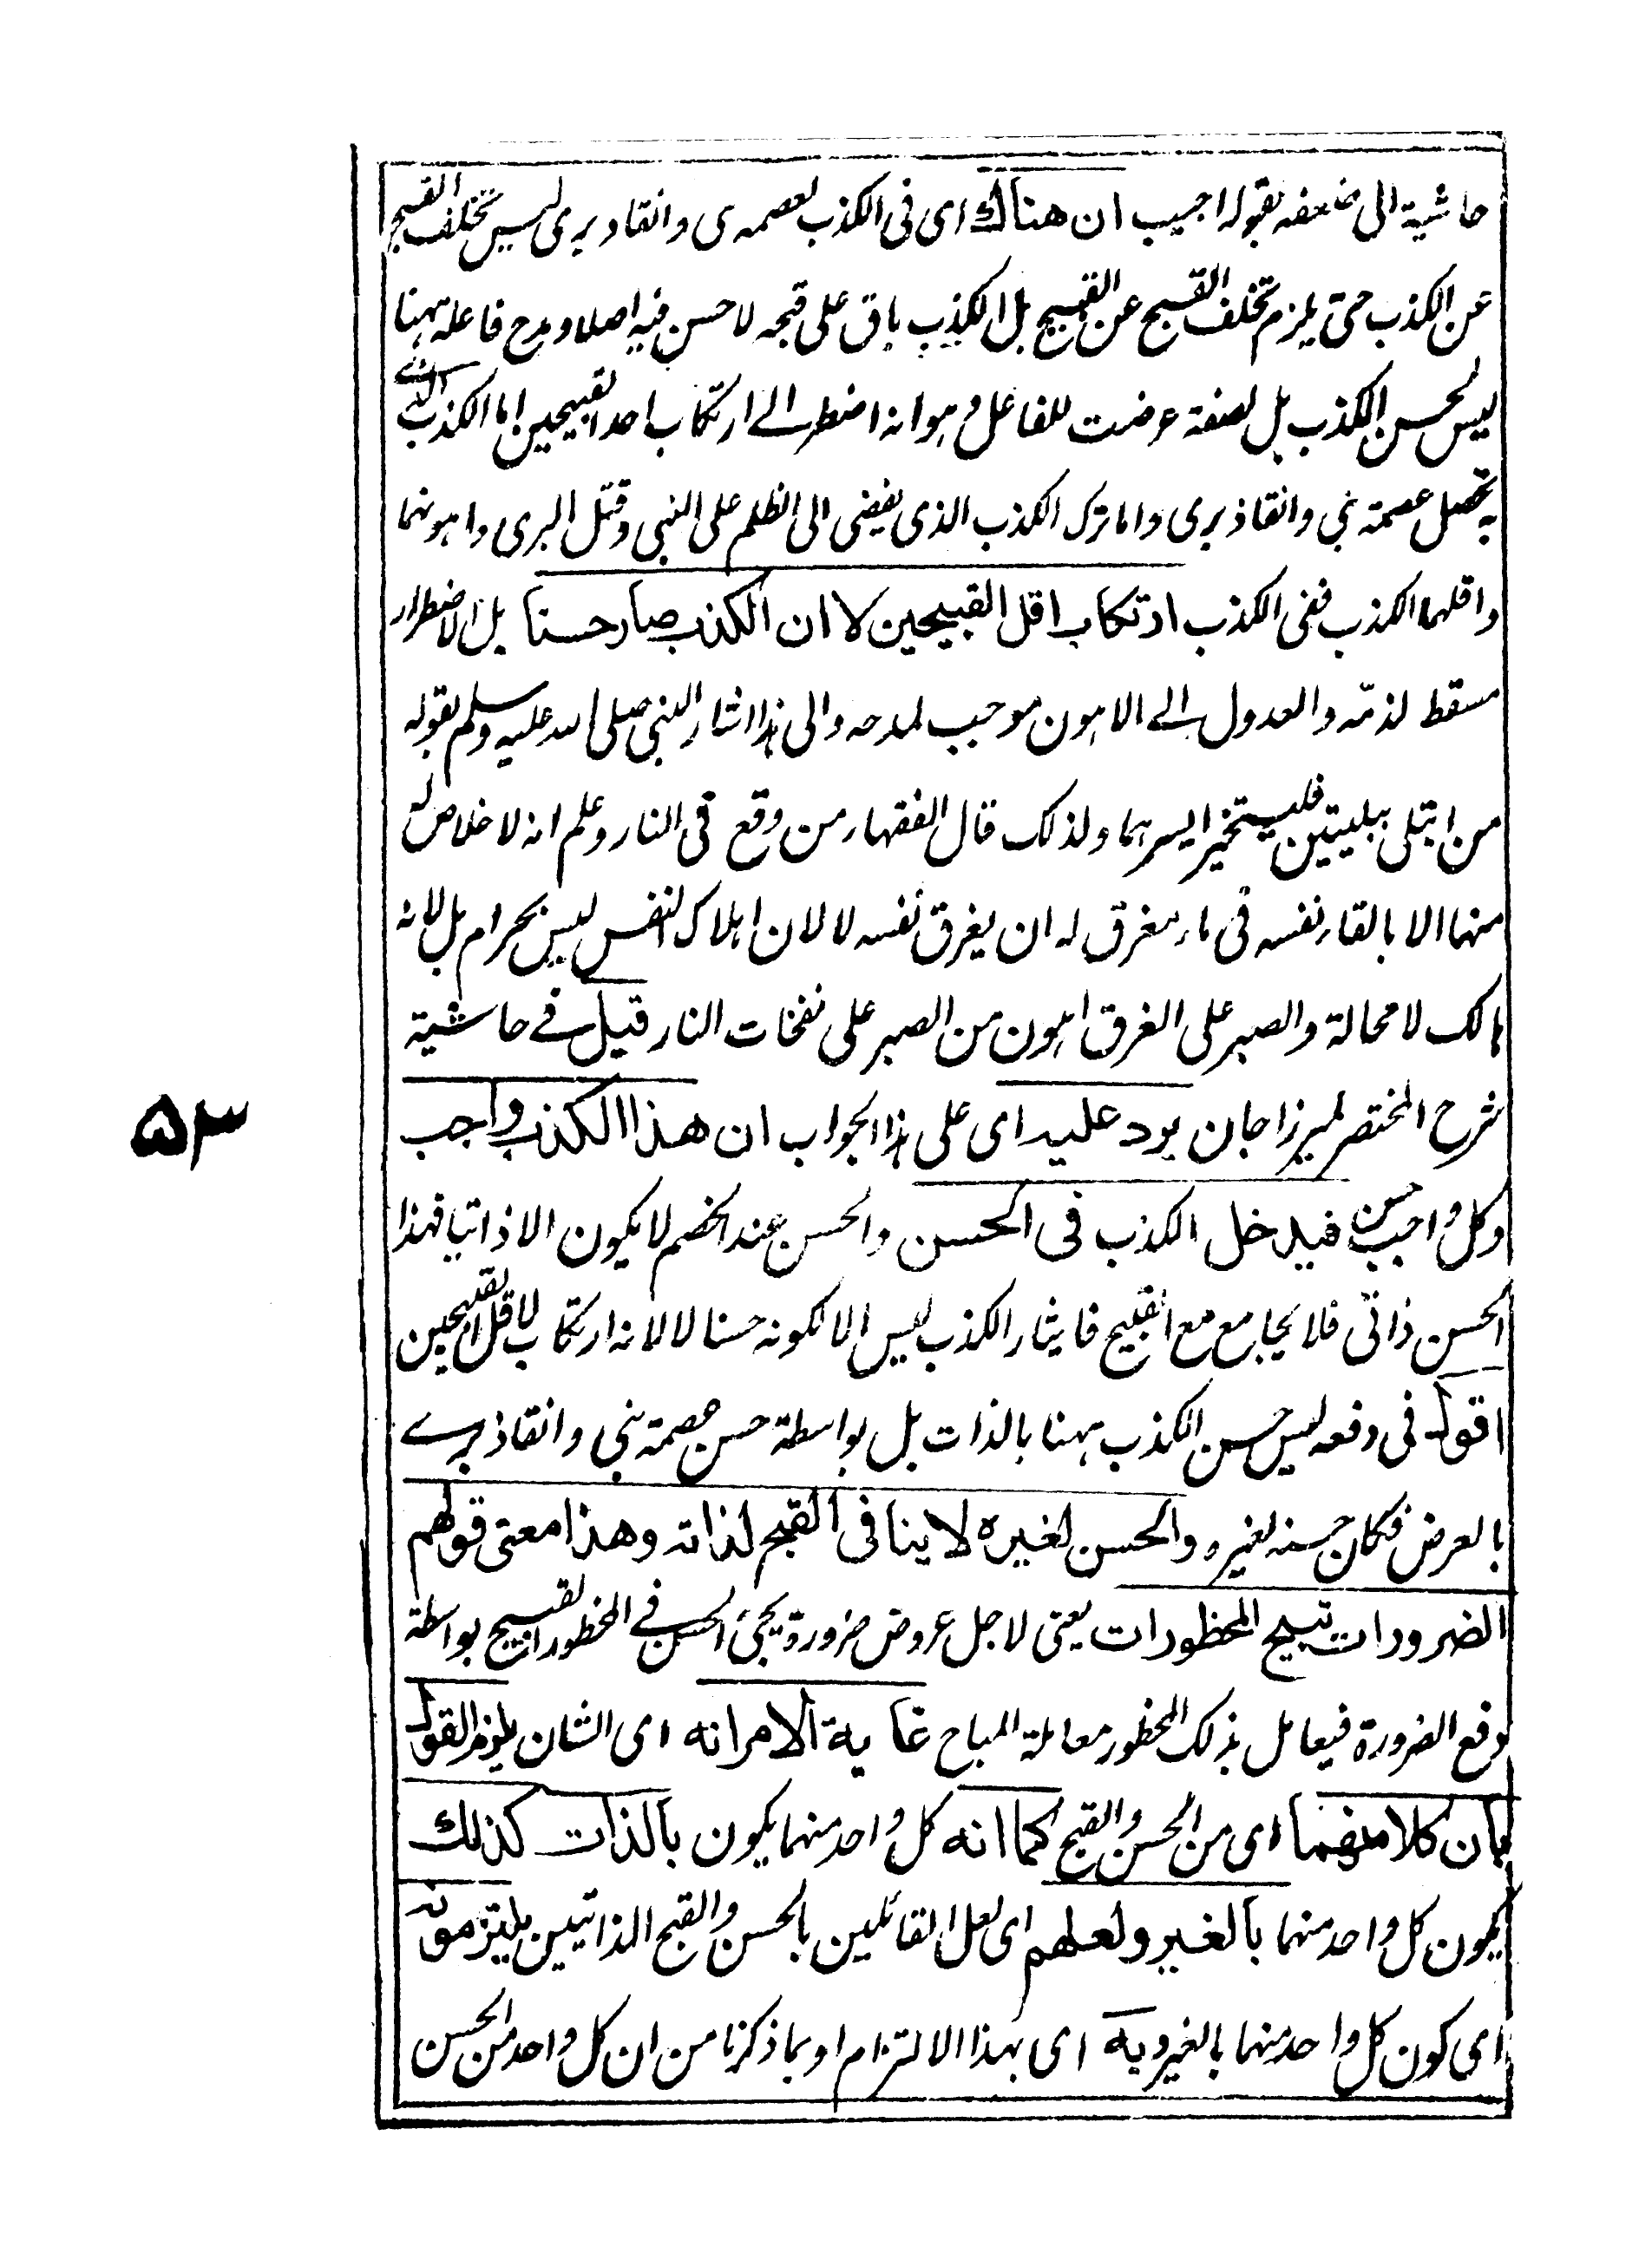 حاشية الى ضعفه بقوله اجيب ان هناك اى فى الكذب لعصمة نبى وانقاذ برى ليس تخلف القبح
عن الكذب حتى يلزم تخلف القبح عن القبيح بل الكذب باق على قبحه لا حسن فيه اصلا ومدح فاعله ههنا
ليس لحسن الكذب بل لصفة عرضت للفاعل وهو انه اضطر الى ارتكاب احد القبيحين اما الكذب الذى
به تحصل عصمة نبى وانقاذ برى واما ترك الكذب الذى يفضى الى الظلم على النبى وقتل البرى واهونهما
واقلهما الكذب ففى الكذب ارتكاب اقل القبيحين لا ان الكذب صار حسنا بل الاضطرار
مسقط لذمّه والعدول الى الاهون موجب لمدحه والى هذا اشار النبى صلى الله عليه وسلم بقوله
من ابتلى ببليتين فليستخير ايسرهما ولذلك قال الفقهاء من وقع فى النار وعلم انه لا خلاص له
منها الا بالقاء نفسه فى ماء مغرق له ان يغرق نفسه لا لان اهلاك النفس ليس بحرام بل لانه
هالك لا محالة والصبر على الغرق اهون من الصبر على نفخات النار قيل فى حاشية
شرح المختصر لميرزاجان يرد عليه اى على هذا الجواب ان هذا الكذب واجب
وكل واجب حسن فيدخل الكذب فى الحسن والحسن عند الخصم لا يكون الا ذاتيا فهذا
الحسن ذاتى فلا يجامع مع القبيح فايثار الكذب ليس الا لكونه حسنا لا لانه ارتكاب لاقل القبيحين
اقول فى دفعه ليس حسن الكذب ههنا بالذات بل بواسطة حسن عصمة نبى وانقاذ برى
بالعرض فكان حسنه لغيره والحسن لغيره لا ينافى القبح لذاته وهذا معنى قولهم
الضرورات تبيح المحظورات يعنى لاجل عروض ضرورة يجئ الحسن فى المحظور القبيح بواسطة
دفع الضرورة فيعامل بذلك المحظور معاملة المباح غاية الامر انه اى الشان يلزم القول
بان كلا منهما اى من الحسن والقبح كما انه كل واحد منهما يكون بالذات كذلك
يكون كل واحد منهما بالغير ولعلهم اى لعل القائلين بالحسن والقبح الذاتيين يلتزمونه
اى كون كل واحد منهما بالغير وبه اى بهذا الالتزام او بما ذكرنا من ان كل واحد من الحسن
٥٣